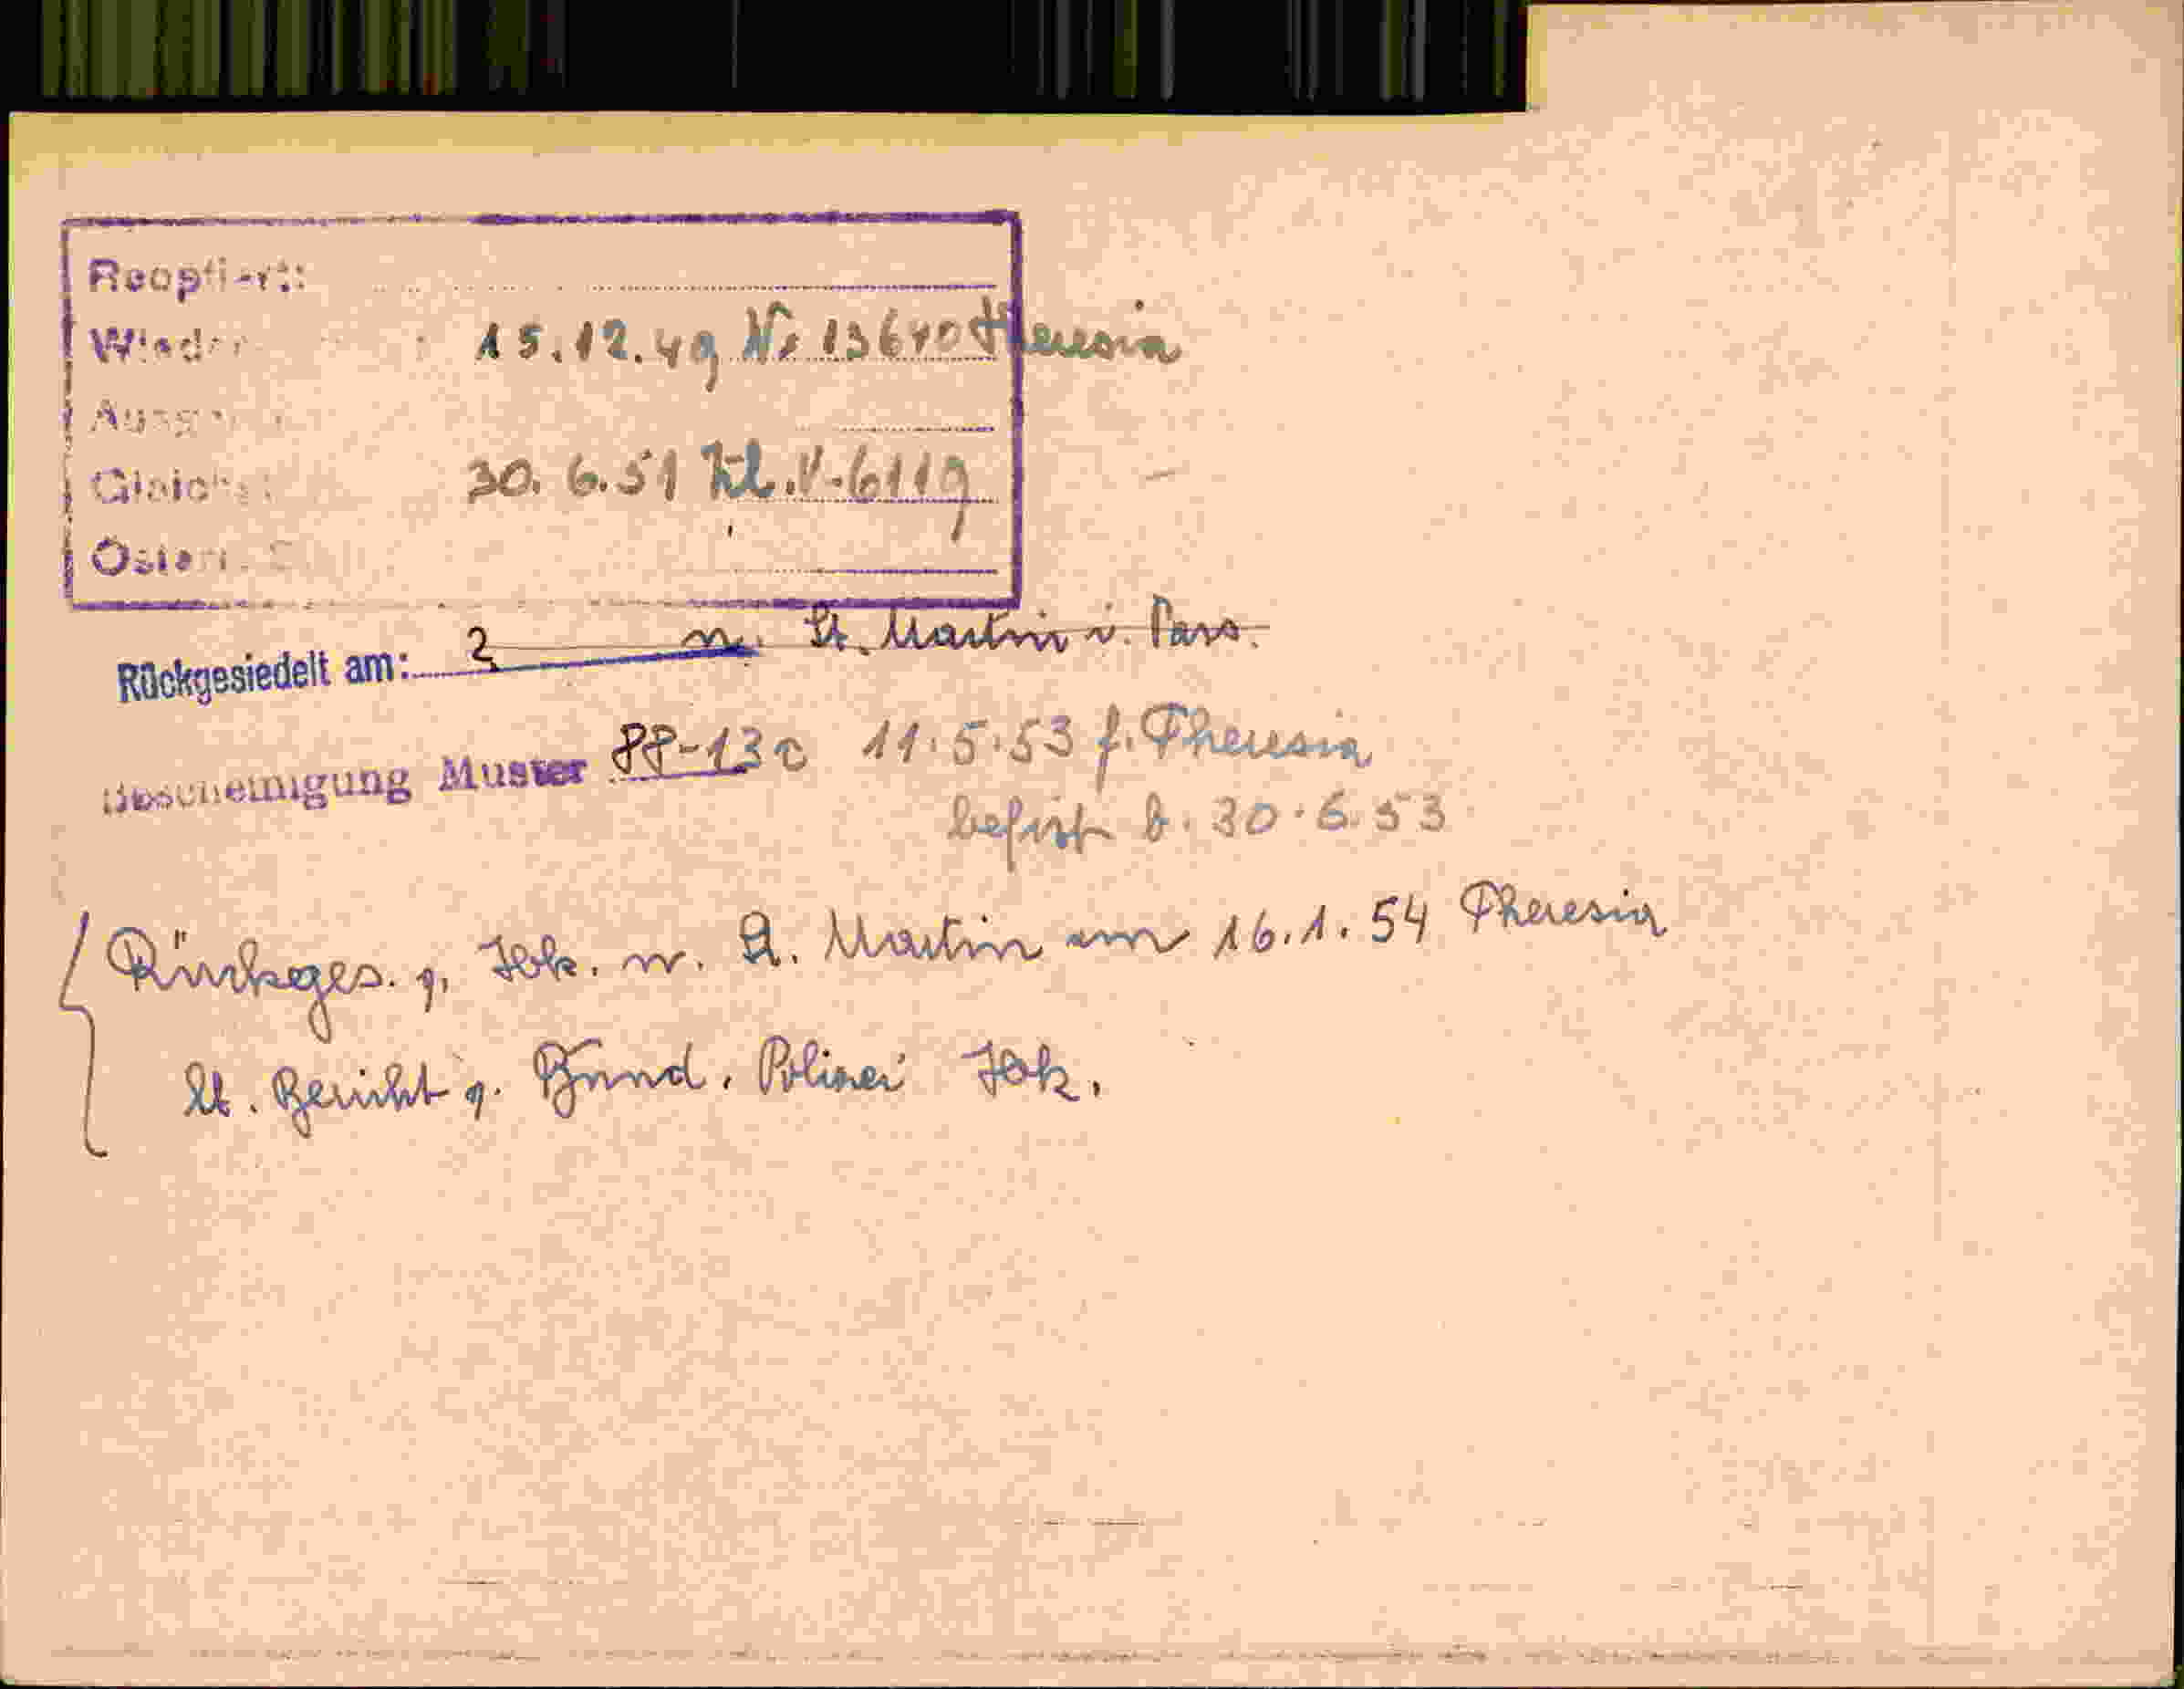 Reoptiert:
15.12.49 Nr 13610 Theresia
30. 6.51 Kl.V.6119
Rückgesiedelt am: 2 n. St. Martin i. Pass.
Bescheinigung Muster 88-13c 11.5.53 f. Theresia
befrist b. 30.6.53
Rückges. n. St. Martin am 16.1.54 Theresia
lt. Bericht Polizei